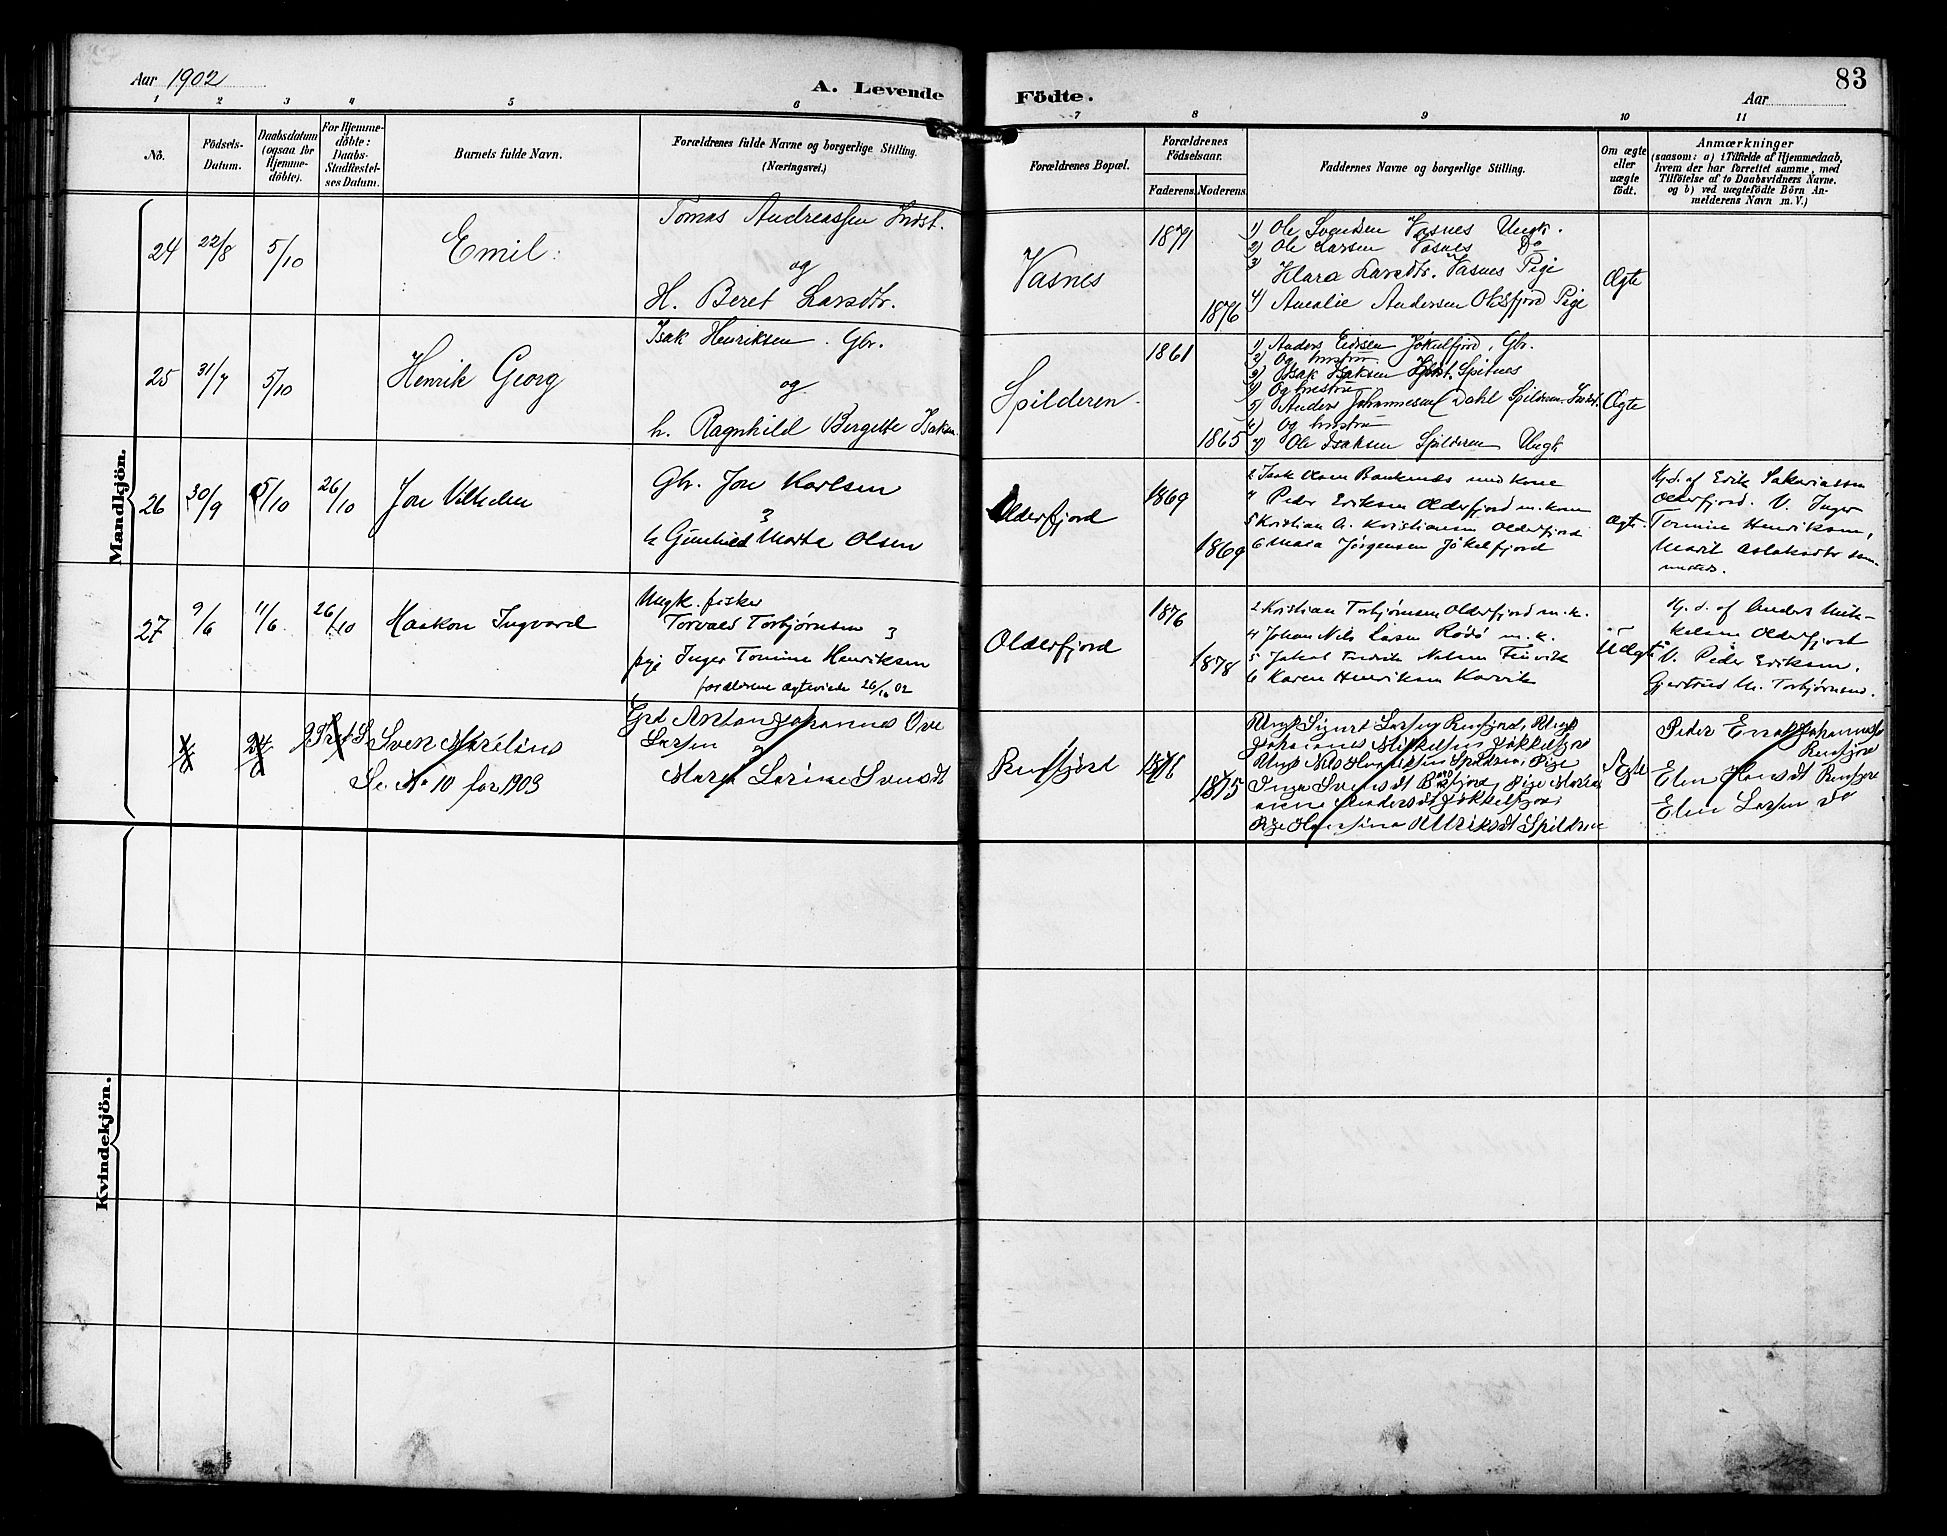 Aar 1902
A. Levende
Födte.
Aar
83
1 2 3 4 5 6 7 8 9 10 11
No.
Födsels-
Datum.
Daabsdatum
(ogsaa for
Hjemme-
döbte).
For Hjemme-
döbte:
Daabs-
Stadfæstel-
ses Datum.
Barnets fulde Navn.
Forældrenes fulde Navne og borgerlige Stilling.
(Næringsvei.)
Forældrenes Bopæl.
Forældrenes
Födselsaar.
Faderens. Moderens.
Faddernes Navne og borgerlige Stilling.
Om ægte
eller
uægte
födt.
Anmærkninger
(saasom: a) i Tilfælde af Hjemmedaab,
hvem der har forrettet samme, med
Tilföielse af to Daabsvidners Navne,
og b) ved uægtefödte Börn An-
melderens Navn m. V.)
Mandkjön.
24 22/8 5/10
Emil
Tomas Andreassen Indst.
og
H. Beret Larsdtr.
Vasnes
1871
1876
1) Ole Svendsen Vasnes Ungk.
2) Ole Larsen Vasnes Do
3) Klara Larsdtr. Vasnes Pige
4) Amalie Andersen Oksfjord Pige
Ægte
25 31/7 5/10
Henrik Georg
Isak Henriksen. Gbr.
og
h. Ragnhild Bergette Isaksen.
Spilderen
1861
1865
1) Anders Jökelfjord, Gbr.
2) Og hustru
3) Isak Isaksen
4) Og hustru
5) Anders Johannesen Dahl Spilderen Indst.
6) Og hustru
7) Ole Isaksen Spilderen Ungk
Ægte
26 30/9 5/10 26/10
Jon Vilhelm
Gbr. Jon Karlsen
h Gunhild Marta Olsen
Olderfjord
1869
1869
2 Isak Olsen med Kone
4 Peder Eriksen Olderfjord m. kone
5 Kristian A. Kristiansen Olderfjord
6 Mara Jørgensen Jökelfjord
Ægte
Hj. d. af Erik Sakariassen
Olderfjord. V. Inger
Tomine Henriksen,
Marit Aslaksdtr sam-
mesteds.
27 9/6 11/6 26/10
Haakon Ingvard
Ungk. fisker
Torvald Torbjørnsen
pige Inger Tomine Henriksen
forældrene ægteviede 26/10 02
Olderfjord
1876
1878
2 Kristian Torbjørnsen Olderfjord m. k.
4 Johan Nils Larsen Rødø m. k.
5 Jakob Fredrik Nilsen
6 Karen Henriksen Korvik
Uægte
Hj. d. af Anders Mik-
kelsen Olderfjord
V. Peder Eriksen,
Gjertrud M. Torbjørnsen.
Sven Marelius
Se No 10 for 1903
Grd Anton Johannes Ove
Larsen
Marit Larine Svensdt
1875
Ungk Sigurt Larsen Rusfjord, Ungk
Johannes Mikkelsen Jökkelfjord
Ungk Nils Henriksen Spildren, Pige
Inga Svensdt
Andersdt Jökkelfjord
Pige Hansina Ulriksdt Spildren
Ægte
Peder Johannes
Elen Hansdt
Elen Larsen do
Kvindekjön.